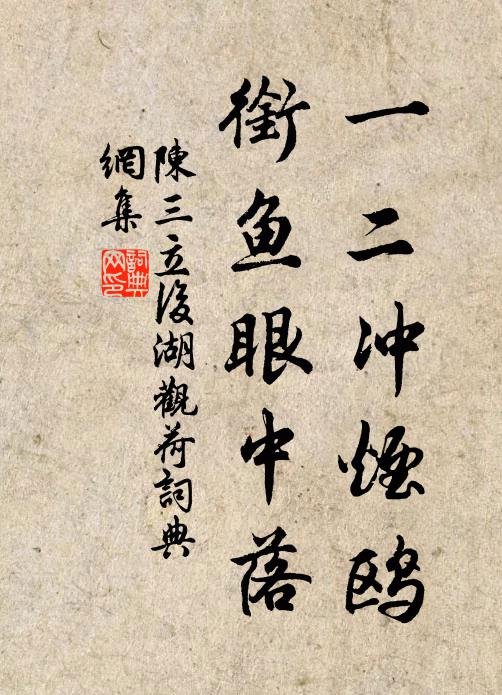 一二冲煙鸥
銜魚眼中落
陳三立後湖觀荷詞典
網集
詞典
网印